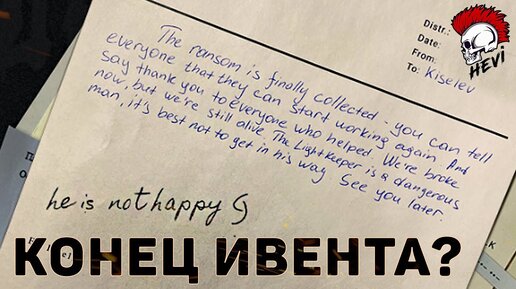 Distr.:
Date:
From:
To: Kiselev
HEVI
The ransom is finally collected - you can tell
everyone that they can start working again. And
say thank you to everyone who helped. We're broke
now, but we're still alive. The Lightkeeper is a dangerous
man, it's best not to get in his way. See you later.
he is not happy
КОНЕЦ ИВЕНТА?